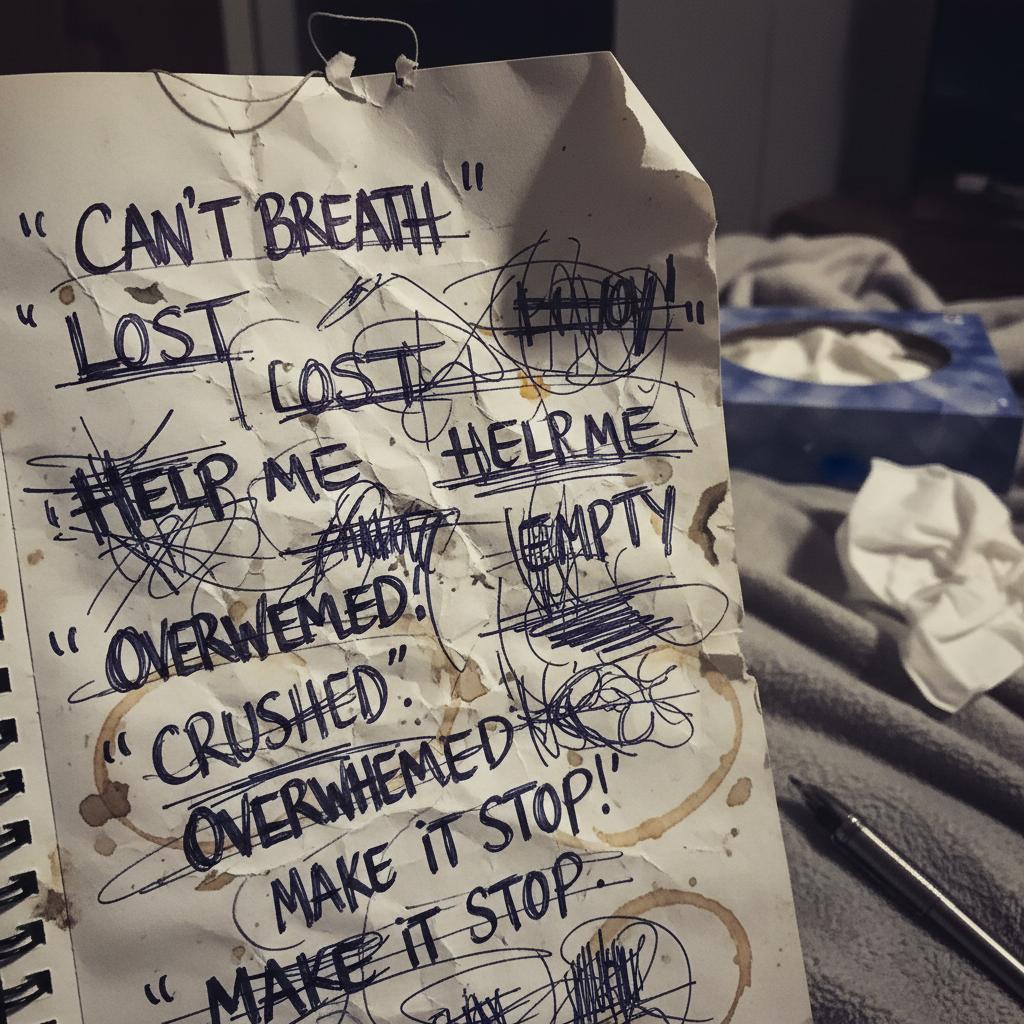 " CAN'T BREATH "
" LOST LOST "
HELP ME HELP ME
EMPTY
" OVERWEMED!
" CRUSHED."
OVERWHEMED
MAKE iT STOP!"
" MAKE iT STOP.